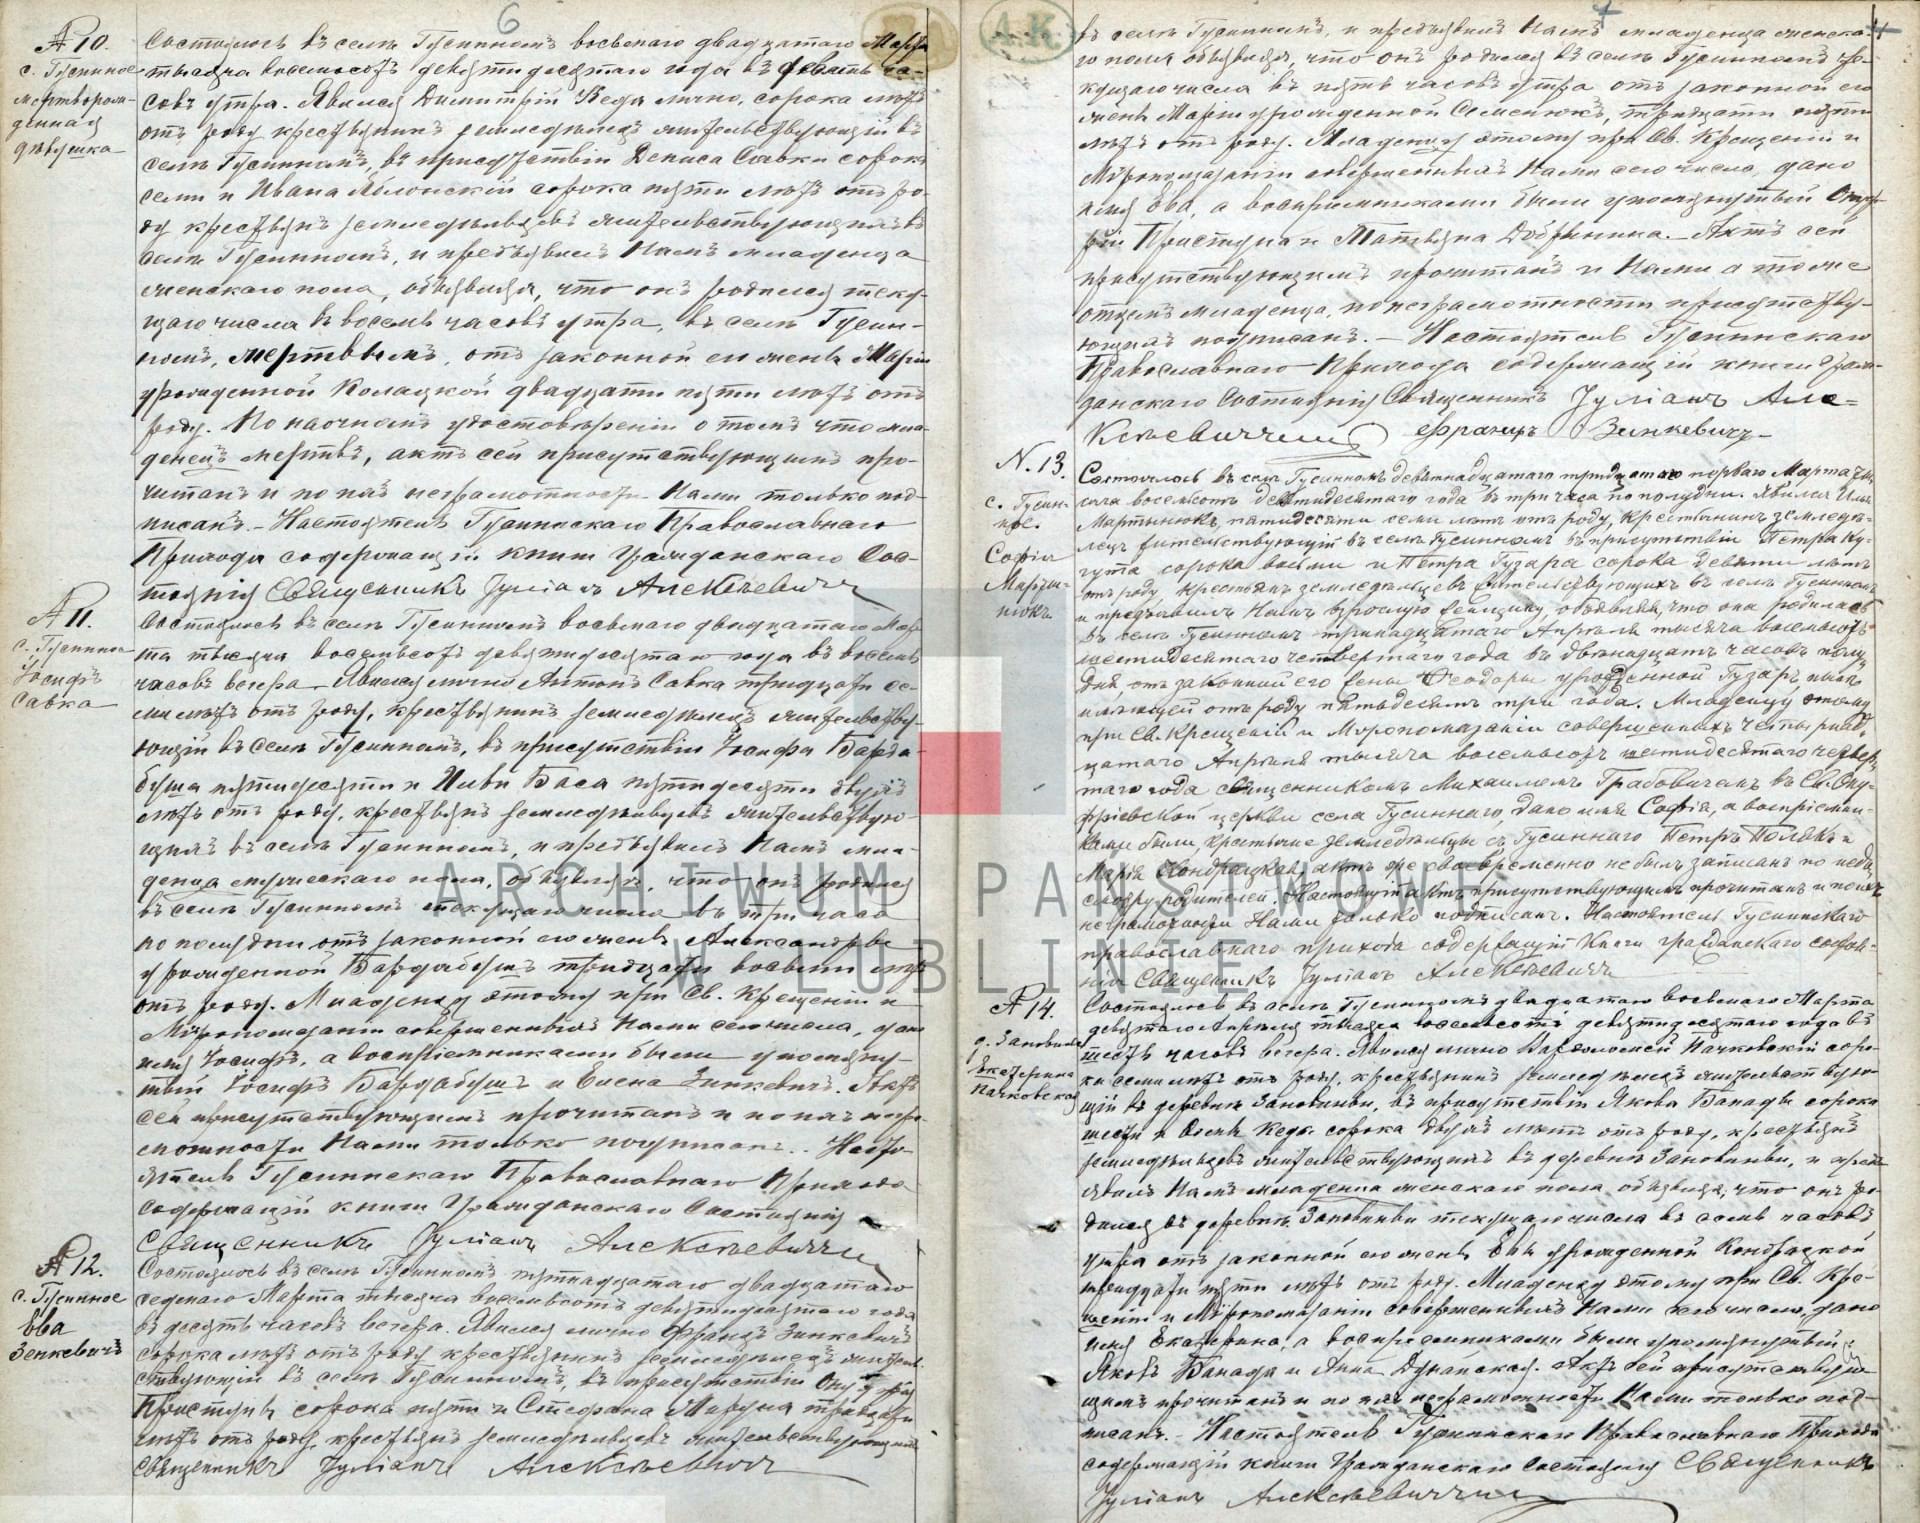 6
№ 10.
с. Гусинное
мертворож-
денная
девушка
Состоялось въ селѣ Гусинномъ восьмаго двадцатаго Марта
тысяча восемьсотъ девятидесятаго года въ девять ча-
совъ утра. Явился Димитрій Кеда лично, сорока лѣтъ
отъ роду крестьянинъ земледѣлецъ жительствующій въ
селѣ Гусинномъ, въ присутствіи Дениса Савки сорока
семи и Ивана Яблонскій сорока пяти лѣтъ отъ ро-
ду крестьянъ земледѣльцевъ жительствующихъ въ
селѣ Гусинномъ, и предъявилъ Намъ младенца
женскаго пола, объявляя, что онъ родился теку-
щаго числа въ восемь часовъ утра, въ селѣ Гусин-
номъ, мертвымъ, отъ законной его жены Маріи
урожденной Колацкой двадцати пяти лѣтъ отъ
роду. По наочномъ удостовѣреніи о томъ что мла-
денецъ мертвъ, актъ сей присутствующимъ про-
читанъ и по ихъ неграмотности Нами только под-
писанъ. – Настоятель Гусинскаго Православнаго
Прихода содержащій книги Гражданскаго Сос-
тоянія Священникъ Іуліанъ Алексѣевичъ
№ 11.
с. Гусинное
Іосифъ
Савка
Состоялось въ селѣ Гусинномъ восьмаго двадцатаго Мар-
та тысяча восемьсотъ девятидесятаго года въ восемь
часовъ вечера. Явился лично Антонъ Савка тридцати се-
ми лѣтъ отъ роду, крестьянинъ земледѣлецъ жительству-
ющій въ селѣ Гусинномъ, въ присутствіи Іосифа Барда-
буша пятидесяти и Ильи Баса пятидесяти двухъ
лѣтъ отъ роду, крестьянъ земледѣльцевъ жительствую-
щихъ въ селѣ Гусинномъ, и предъявилъ Намъ мла-
денца мужескаго пола, объявляя, что онъ родился
въ селѣ Гусинномъ текущаго числа въ три часа
по полудни отъ законной его жены Александры
урожденной Бардабушъ тридцати восьми лѣтъ
отъ роду. Младенцу этому при Св. Крещеніи и
Мѵропомазаніи совершенныхъ Нами сего числа, дано
имя Іосифъ, а воспріемниками были упомяну-
тый Іосифъ Бардабушъ и Елена Зинкевичъ. Актъ
сей присутствующимъ прочитанъ и по ихъ негра-
мотности Нами только подписанъ. – Насто-
ятель Гусинскаго Православнаго Прихода
содержащій книги Гражданскаго Состоянія
Священникъ Іуліанъ Алексѣевичъ
№ 12.
с. Гусинное
Ева
Зенкевичъ
Состоялось въ селѣ Гусинномъ пятнадцатаго двадцать
седьмаго Марта тысяча восемьсотъ девятидесятаго года
въ десять часовъ вечера. Явился лично Францъ Зинкевичъ
сорока лѣтъ отъ роду крестьянинъ земледѣлецъ житель-
ствующій въ селѣ Гусинномъ, въ присутствіи Онуфрія
Приступы сорока пяти и Стефана Мазура тридцати
лѣтъ отъ роду, крестьянъ земледѣльцевъ жительствующихъ
Священникъ Іуліанъ Алексѣевичъ
А.К
7
въ селѣ Гусинномъ, и предъявилъ Намъ младенца женска-
го пола объявляя, что онъ родился въ селѣ Гусинномъ те-
кущаго числа въ пять часовъ утра отъ законной его
жены Маріи урожденной Семенюкъ, тридцати пяти
лѣтъ отъ роду. Младенцу этому при Св. Крещеніи и
Мѵропомазаніи совершенныхъ Нами сего числа, дано
имя Ева, а воспріемниками были упомянутый Онуф-
рій Приступа и Матвѣя Добринина. – Актъ сей
присутствующимъ прочитанъ и Нами а также
отцемъ младенца, по неграмотности присутству-
ющихъ подписанъ. – Настоятель Гусинскаго
Православнаго Прихода содержащій книги Граж-
данскаго Состоянія Священникъ Іуліанъ Але-
ксѣевичъ Францъ Зинкевичъ
N. 13.
с. Гусин-
ное.
Софія
Марты-
нюкъ
Состоялось въ селѣ Гусинномъ девятнадцатаго тридцать перваго Марта ты-
сяча восемьсотъ девятидесятаго года въ три часа по полудни. Явился Илья
Мартынюкъ, пятидесяти семи лѣтъ отъ роду, крестьянинъ земледѣ-
лецъ жительствующій въ селѣ Гусинномъ въ присутствіи Петра Ку-
гута сорока восьми и Петра Гузара сорока девяти лѣтъ
отъ роду, крестьянъ земледѣльцевъ жительствующихъ въ селѣ Гусинномъ
и предъявилъ Намъ взрослую женщину, объявляя, что она родилась
въ селѣ Гусинномъ тринадцатаго Апрѣля тысяча восемьсотъ
шестидесятаго четвертаго года въ двѣнадцать часовъ полу-
дня отъ законной его жены Ѳеодоры урожденной Гузаръ, нынѣ
имѣющей отъ роду пятьдесятъ три года. Младенцу этому
при Св. Крещеніи и Мѵропомазаніи совершенныхъ четырнад-
цатаго Апрѣля тысяча восемьсотъ шестидесятаго четвер-
таго года священникомъ Михаиломъ Грабовичемъ въ Св. Ону-
фріевской церкви села Гусиннаго, дано имя Софія, а воспріемни-
ками были, крестьяне земледѣльцы съ Гусиннаго Петръ Полякъ и
Марія Кондрацкая, актъ же своевременно не былъ записанъ по недо-
смотру родителей. Настоящій актъ присутствующимъ прочитанъ и по ихъ
неграмотности Нами только подписанъ. Настоятель Гусинскаго
православнаго прихода содержащій книги гражданскаго состоя-
нія Священникъ Іуліанъ Алексѣевичъ
№ 14.
д. Зановинье
Екатерина
Пачковская
Состоялось въ селѣ Гусинномъ двадцатаго восьмаго Марта
девятаго Апрѣля тысяча восемьсотъ девятидесятаго года въ
шесть часовъ вечера. Явился лично Варѳоломей Пачковскій соро-
ка семи лѣтъ отъ роду, крестьянинъ земледѣлецъ жительствую-
щій въ деревнѣ Зановинье, въ присутствіи Якова Банады сорока
шести и Кеды сорока двухъ лѣтъ отъ роду, крестьянъ
земледѣльцевъ жительствующихъ въ деревнѣ Зановинье, и предъ-
явилъ Намъ младенца женскаго пола объявляя, что онъ ро-
дился въ деревнѣ Зановинье текущаго числа въ семь часовъ
утра отъ законной его жены Евы урожденной Кондрацкой
тридцати пяти лѣтъ отъ роду. Младенцу этому при Св. Кре-
щеніи и Мѵропомазаніи совершенныхъ Нами сего числа, дано
имя Екатерина, а воспріемниками были упомянутый
Яковъ Банада и Анна Дунайская. Актъ сей присутствую-
щимъ прочитанъ и по ихъ неграмотности Нами только под-
писанъ. – Настоятель Гусинскаго Православнаго Прихода
содержащій книги Гражданскаго Состоянія Священникъ
Іуліанъ Алексѣевичъ
ARCHIWUM PAŃSTWOWE
W LUBLINIE